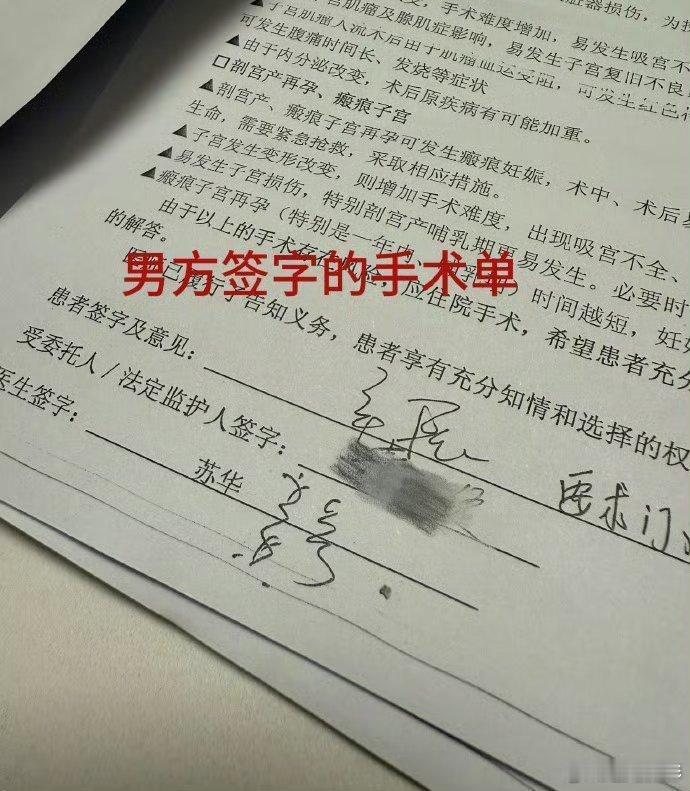 手术难度增加，易发生吸宫不
脏器损伤，为
宫肌瘤及腺肌症影响，易发生子宫复旧不良
▲子宫肌瘤人流术后由于肌瘤血运受阻，可发生红色
可发生腹痛时间长、发烧等症状
▲由于内分泌改变，术后原疾病有可能加重。
□剖宫产再孕、瘢痕子宫
▲剖宫产、瘢痕子宫再孕可发生瘢痕妊娠，术中、术后
生命，需要紧急抢救，采取相应措施。
▲子宫发生变形改变，则增加手术难度，出现吸宫不全、
▲易发生子宫损伤，特别剖宫产哺乳期更易发生。必要时
▲瘢痕子宫再孕（特别是一年内、）时间越短，妊
由于以上的手术存在风险，应住院手术，希望患者充分
的解答。
男方签字的手术单
已履行了告知义务，患者享有充分知情和选择的权
患者签字及意见：
受委托人/法定监护人签字：
要求门
医生签字：
苏华